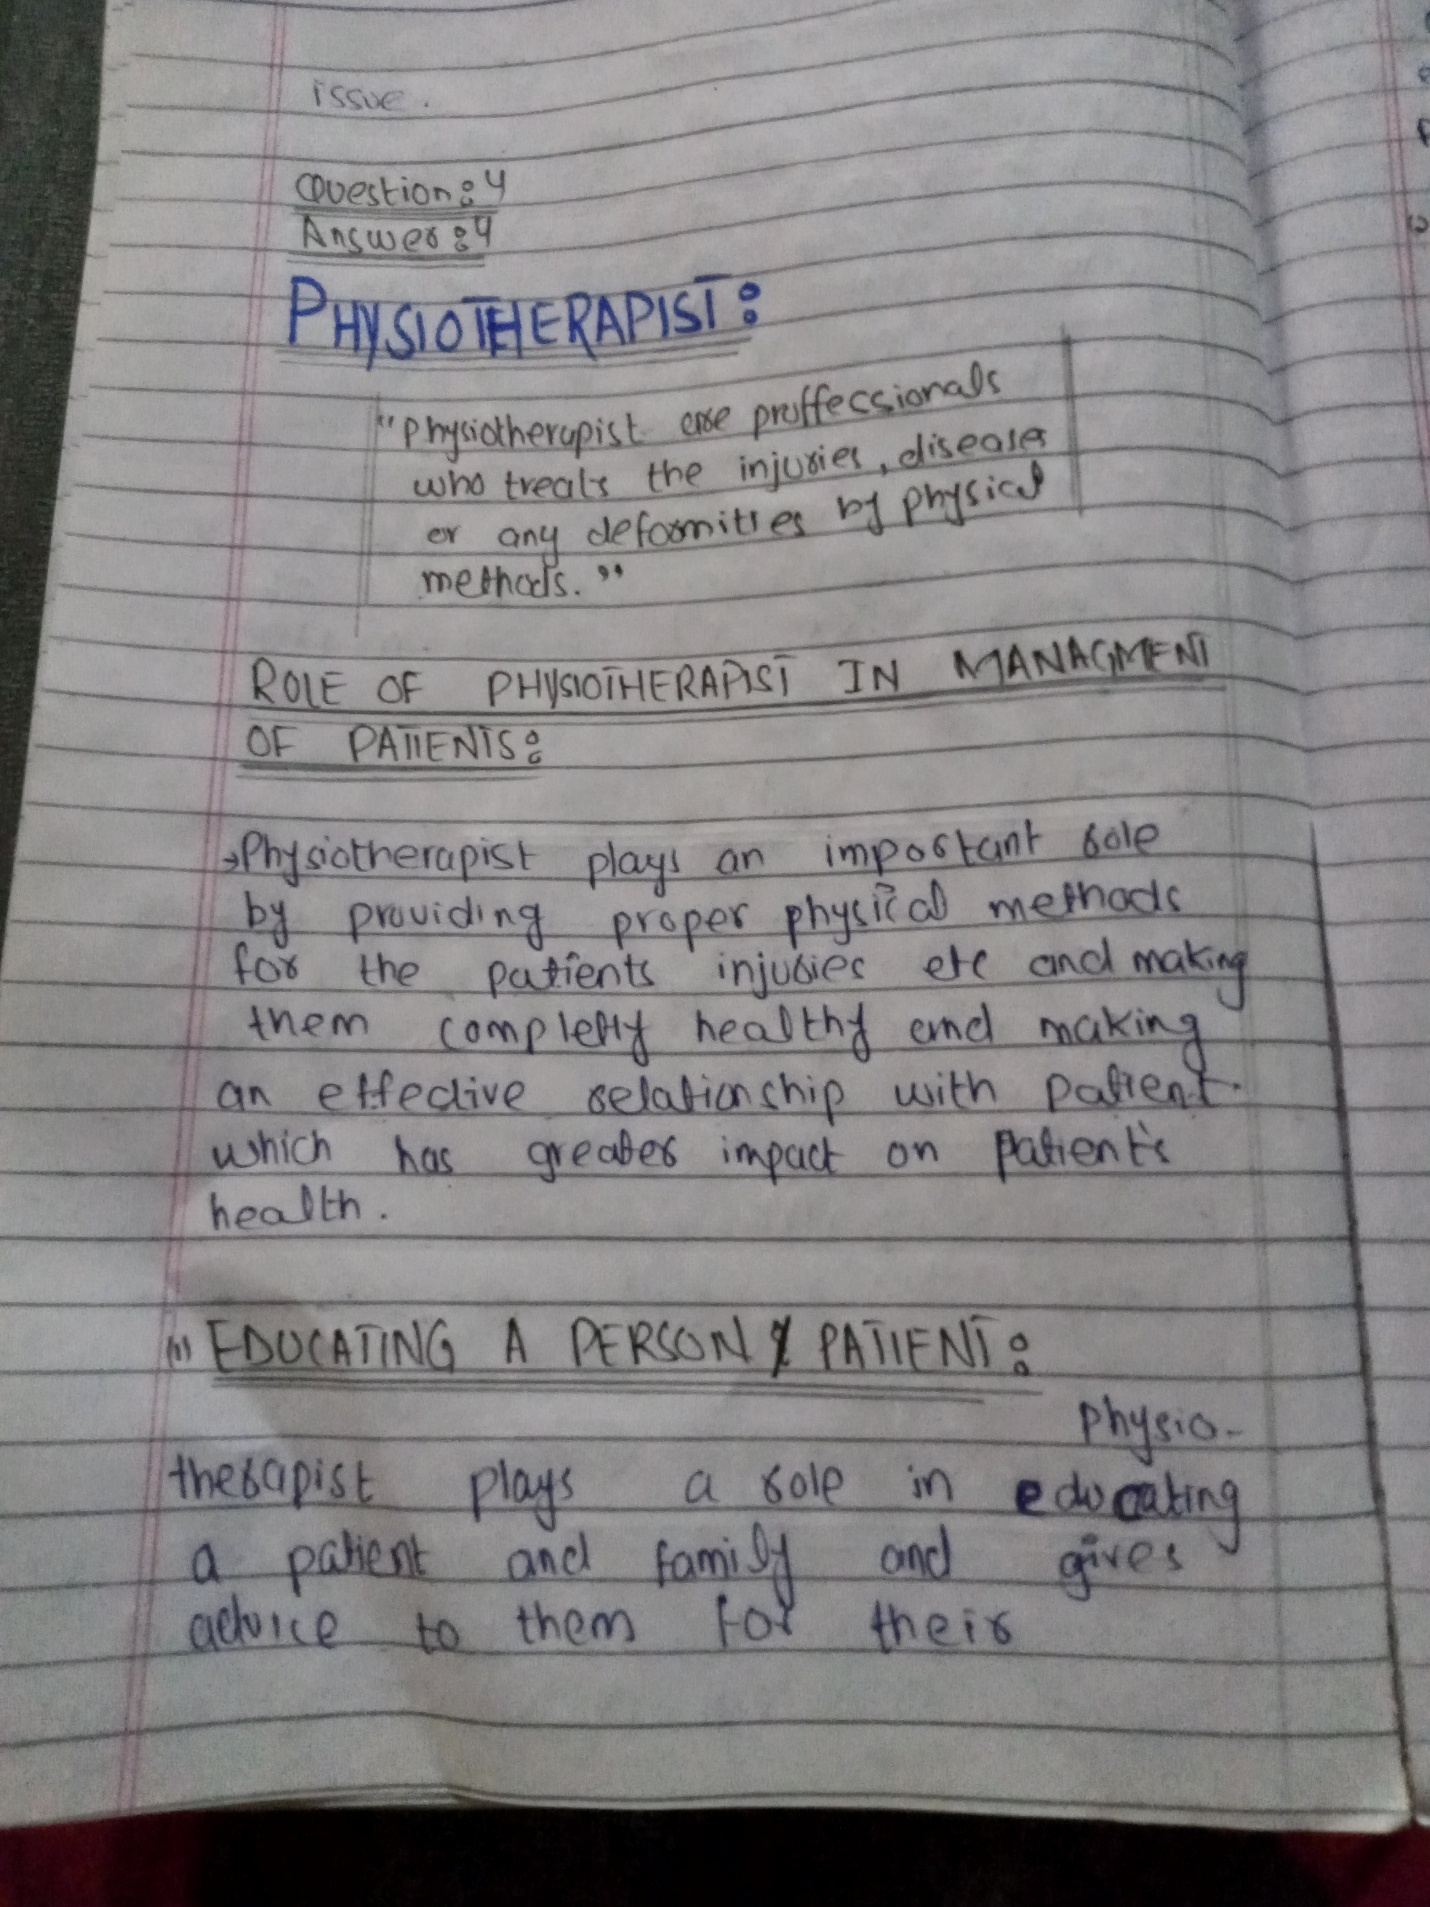 issue.
Question:4
Answer:4
PHYSIOTHERAPIST:
"Physiotherapist are proffecssionals
who treats the injuries, diseases
or any deformities by physical
methods."
ROLE OF PHYSIOTHERAPIST IN MANAGMENT
OF PATIENTS:
→Physiotherapist plays an important role
by providing proper physical methods
for the patients injuries etc and making
them completly healthy and making
an effective relationship with patient.
which has greater impact on patient's
health.
(1) EDUCATING A PERSON & PATIENT:
Physio-
therapist plays a role in educating
a patient and family and gives
advice to them for their